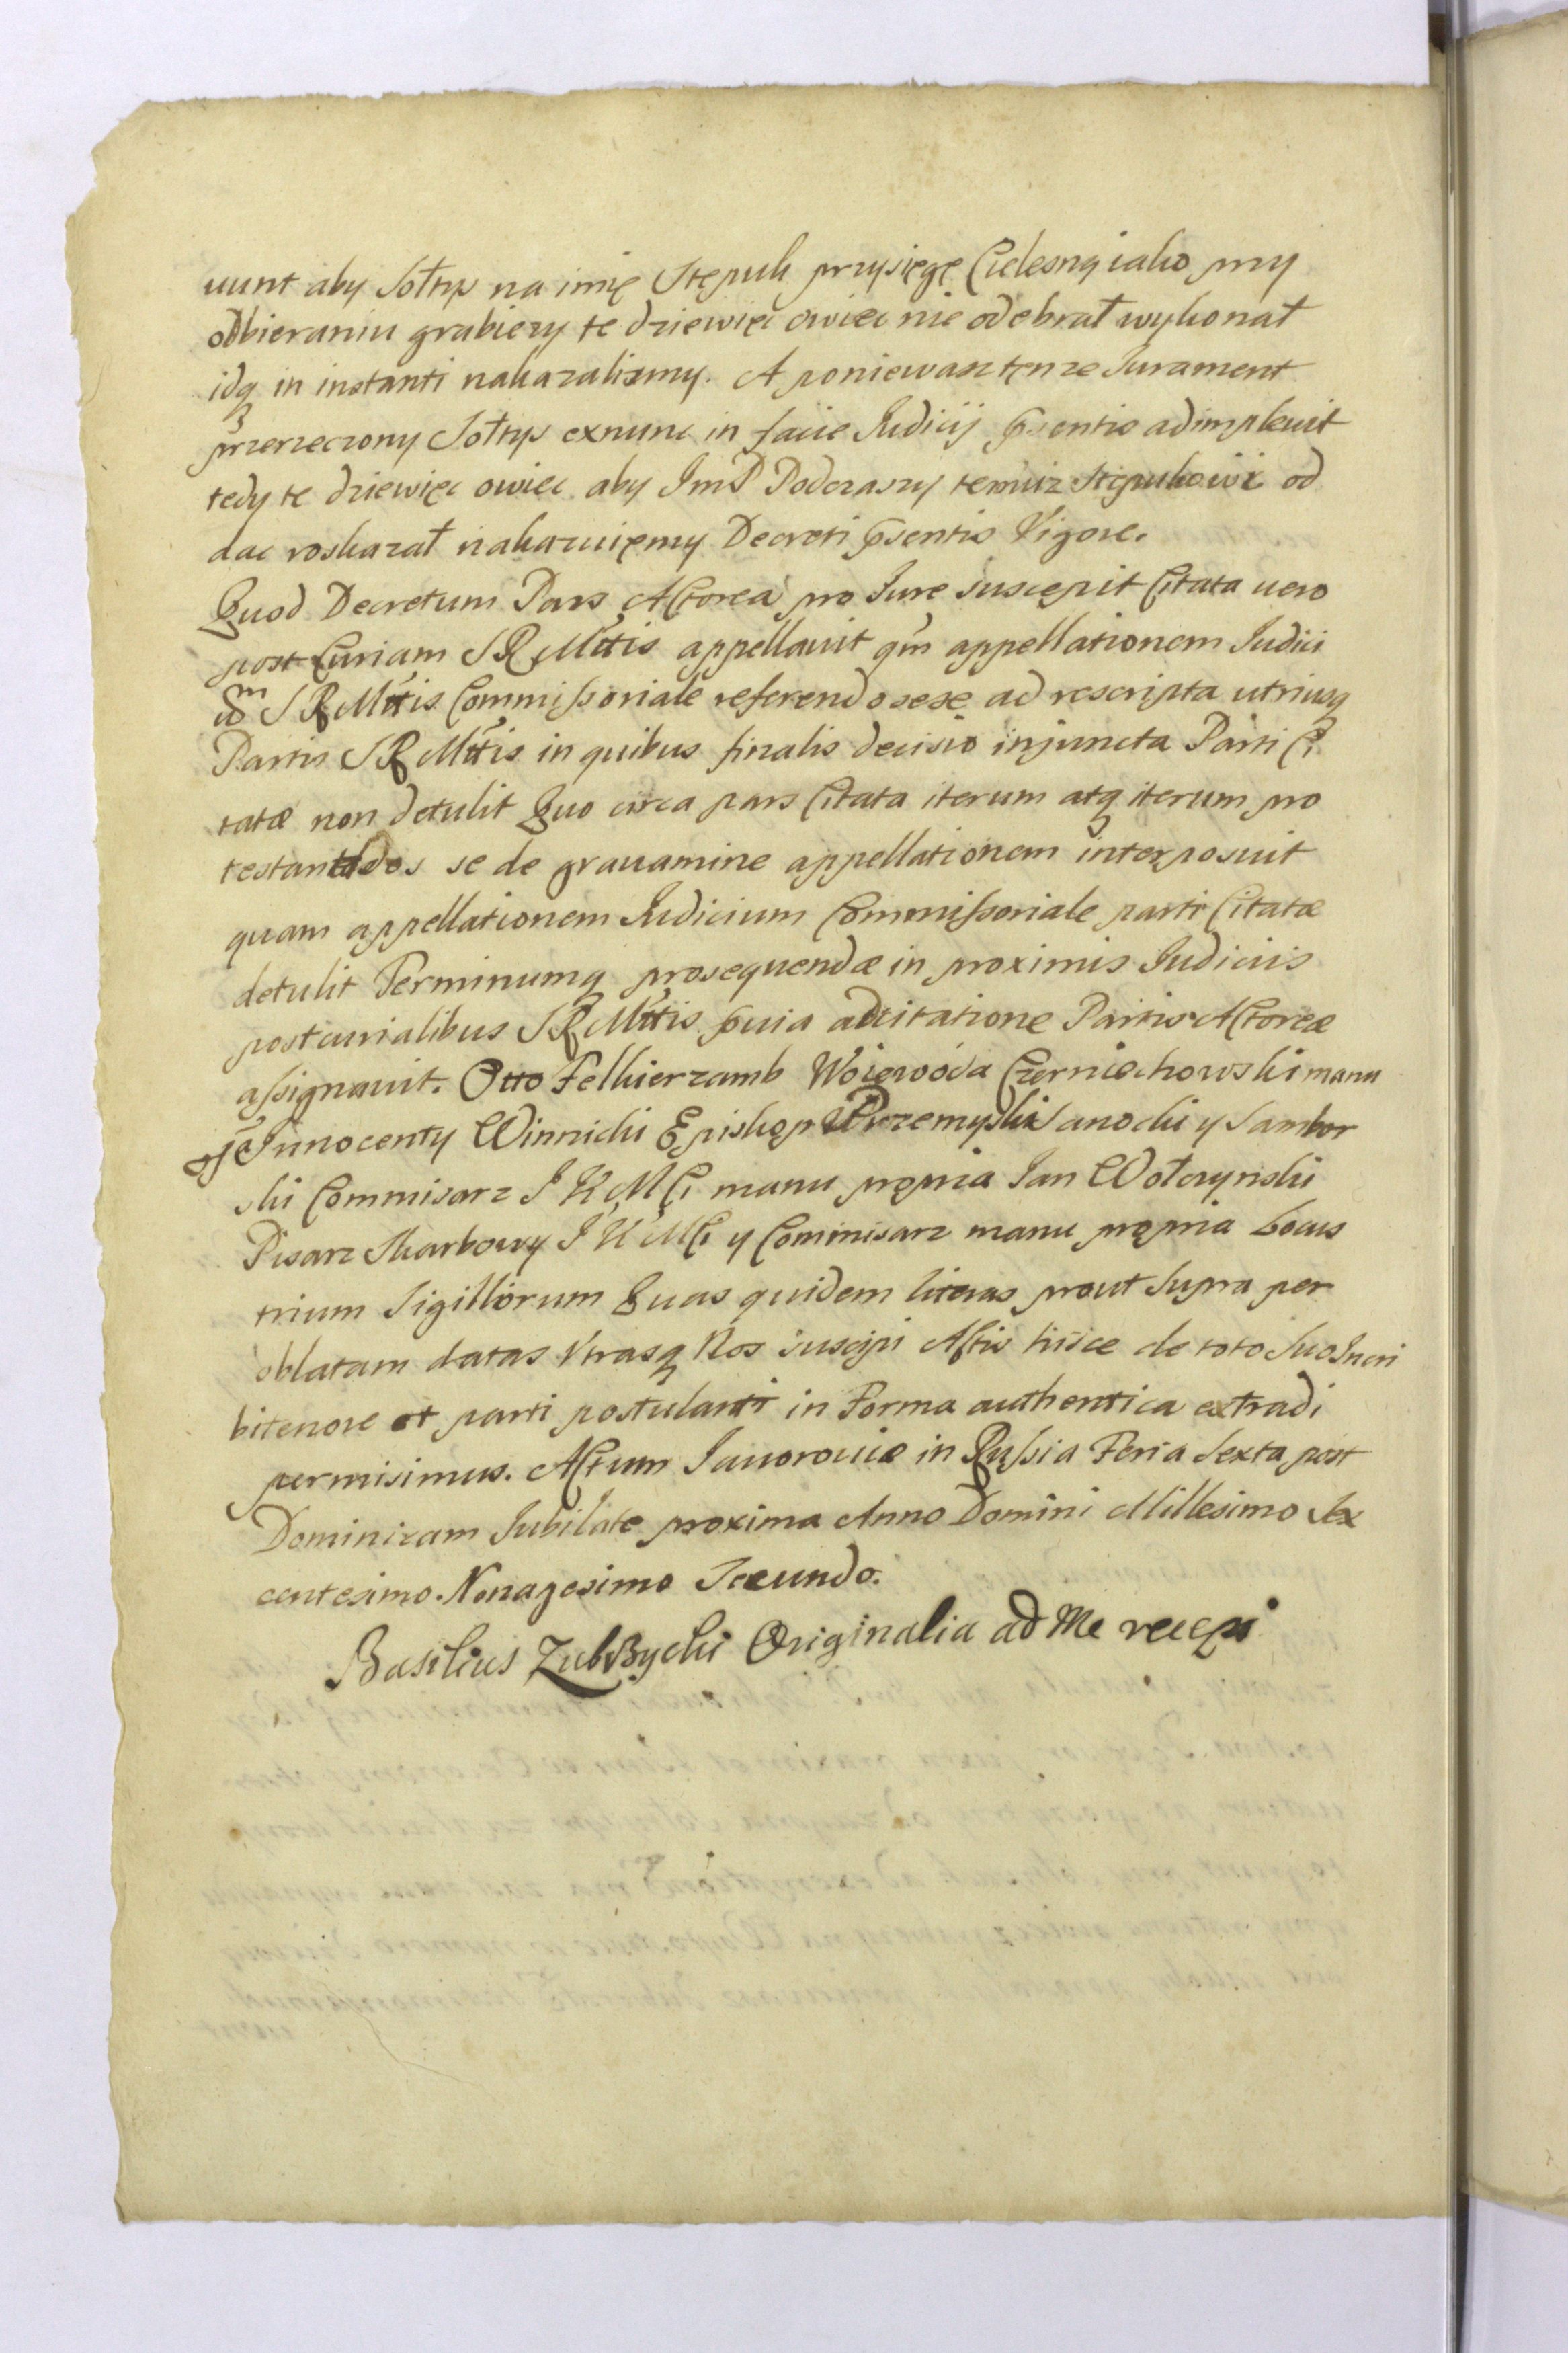 uunt aby Sołtys na imię Stepuk przysięgę Cielesną iako przy
odbieraniu grabiezy te dziewięc owiec nie odebrał wykonał
idq in instanti nakazalismy. A poniewasz tenze Jurament
przerzeczony Sołtys exnunc in facie Judicij pҏsentis adimpleuit
tedy te dziewięc owiec aby ImP Podczaszy temuiz Stepukowi od
dac roskazał nakazuięmy Decreti pҏsentis Vigore.
Quod Decretum Pars Actorea pro Jure suscepit Citata uero
post Curiam SRMttis appellauit qm appellationem Judici
um SRMttis Commissoriale referendo sese ad rescripta utriusq
Partis SRMttis in quibus finalis decisio injuncta Parti Ci
tatæ non detulit Quo circa pars Citata iterum atq iterum pro
testan se de grauamine appellationem interposuit
quam appellationem Judicium Commissoriale parti Citatæ
detulit Terminumq prosequendæ in proximis Judiciis
postcurialibus SRMttis pҏuia adcitatione Partis Actoreæ
assignauit. Otto Felkierzamb Woiewoda Czerniechowski manu
Innocenty Winnicki Episkop Przemyski Sanocki y Sambor
ski Commisarz J K M Ci manu propria Jan Wołczynski
Pisarz Skarbowy J K M Ci y Commisarz manu propria Locus
trium Sigillorum Quas quidem literas prout Supra per
oblatam datas Vtrasq Nos suscipi Actis hisce de toto Suo Inscri
bi tenore et parti postulanti in Forma authentica extradi
permisimus. Actum Jauorouiæ in Russia Feria Sexta post
Dominicam Jubilate proxima Anno Domini Millesimo Sex
centesimo. Nonagesimo Secundo.
Basilius Zubrzycki Originalia ad Me recepi